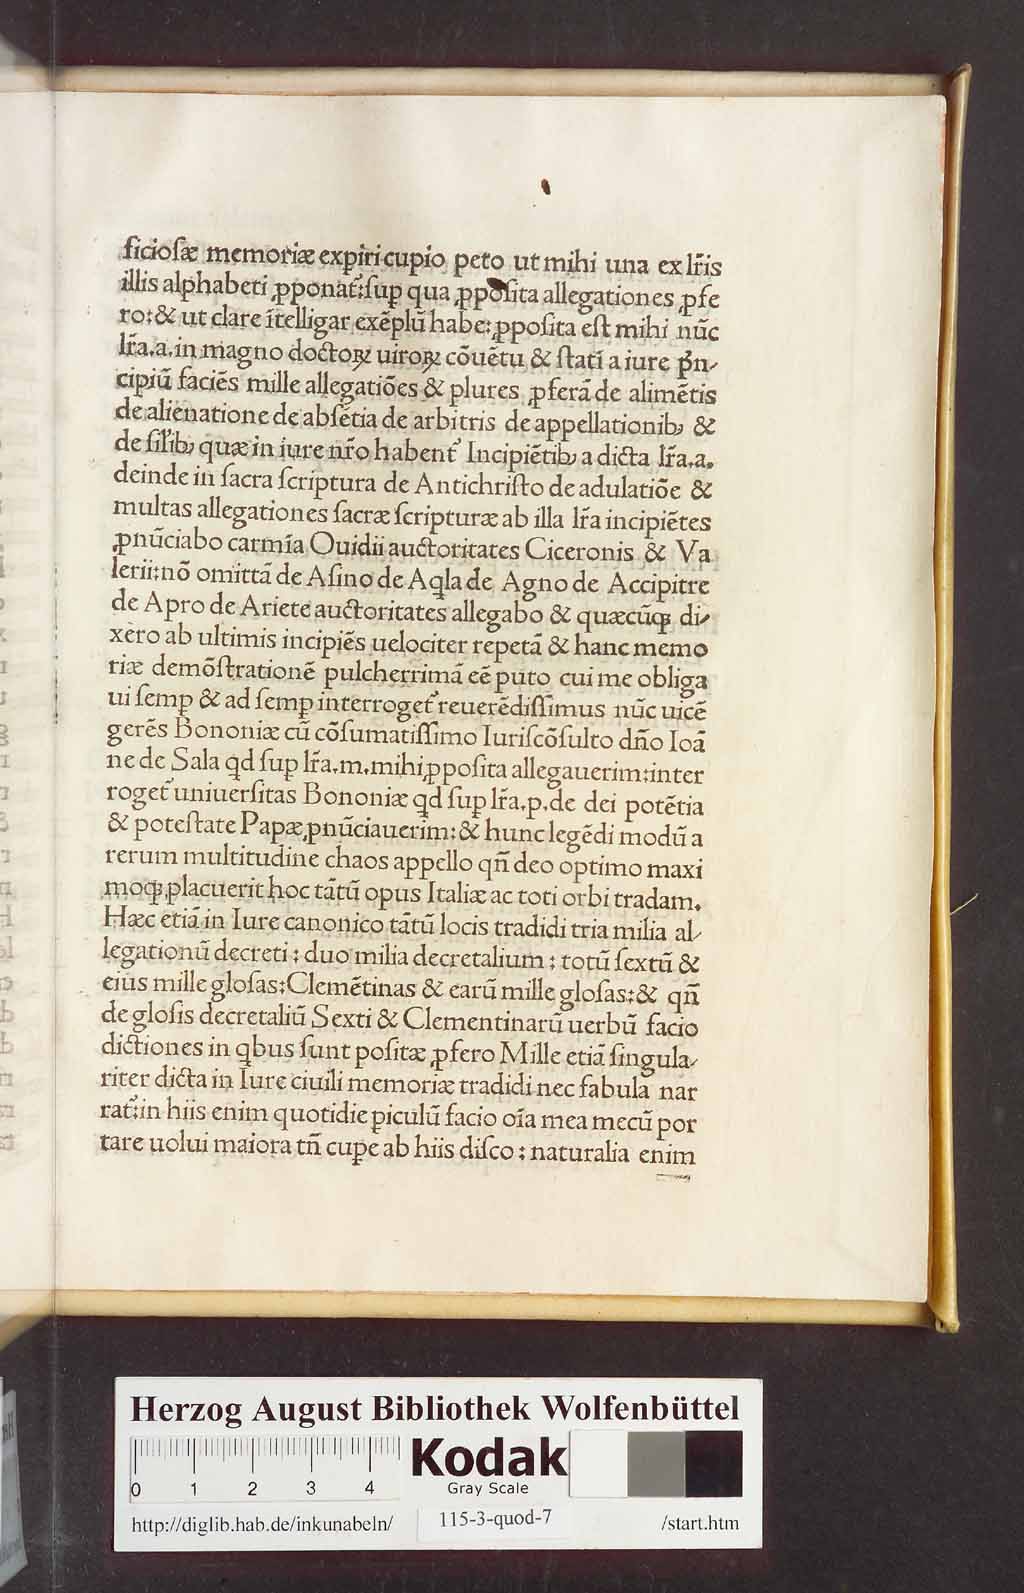 ficioſæ memoriæ expiri cupio peto ut mihi una ex lr̃is
illis alphabeti ꝓponat᷑:ſuꝑ qua ꝓpoſita allegationes ꝓfe
ro:& ut clare ĩtelligar exẽplũ habe:ꝓpoſita eſt mihi nũc
lr̃a.a.in magno doctoꝝ uiroꝝ cõuẽtu & ſtatĩ a iure pr̃n-
cipiũ faciẽs mille allegatiões & plures ꝓferã de alimẽtis
de alienatione de abſẽtia de arbitris de appellationibꝫ &
de ſil̃ibꝫ quæ in iure nr̃o habent᷑ Incipiẽtibꝫ a dicta lr̃a.a.
deinde in ſacra ſcriptura de Antichriſto de adulatiõe &
multas allegationes ſacræ ſcripturæ ab illa lr̃a incipiẽtes
ꝓnũciabo carmĩa Ouidii auctoritates Ciceronis & Va
lerii:nõ omittã de Aſino de Aqla de Agno de Accipitre
de Apro de Ariete auctoritates allegabo & quæcũqꝫ di-
xero ab ultimis incipiẽs uelociter repetã & hanc memo
riæ demõſtrationẽ pulcherrimã eẽ puto cui me obliga
ui ſemꝑ & ad ſemꝑ interroget᷑ reuerẽdiſſimus nũc uicẽ
gerẽs Bononiæ cũ cõſumatiſſimo Iuriſcõſulto dño Ioã
ne de Sala qd ſuꝑ lr̃a.m.mihi ꝓpoſita allegauerim:inter
roget᷑ uniuerſitas Bononiæ qd ſuꝑ lr̃a.p.de dei potẽtia
& poteſtate Papæ ꝓnũciauerim:& hunc legẽdi modũ a
rerum multitudine chaos appello qñ deo optimo maxi
moqꝫ placuerit hoc tãtũ opus Italiæ ac toti orbi tradam.
Hæc etiã in Iure canonico tãtũ locis tradidi tria milia al-
legationũ decreti : duo milia decretalium : totũ ſextũ &
eius mille gloſas:Clemẽtinas & earũ mille gloſas:& qñ
de gloſis decretaliũ Sexti & Clementinarũ uerbũ facio
dictiones in qbus ſunt poſitæ ꝓfero Mille etiã ſingula-
riter dicta in Iure ciuili memoriæ tradidi nec fabula nar
rat᷑:in hiis enim quotidie ꝑiculũ facio oĩa mea mecũ por
tare uolui maiora tñ cuꝑe ab hiis diſco : naturalia enim
Herzog August Bibliothek Wolfenbüttel
0 1 2 3 4
Kodak
Gray Scale
http://diglib.hab.de/inkunabeln/ 115-3-quod-7 /start.htm